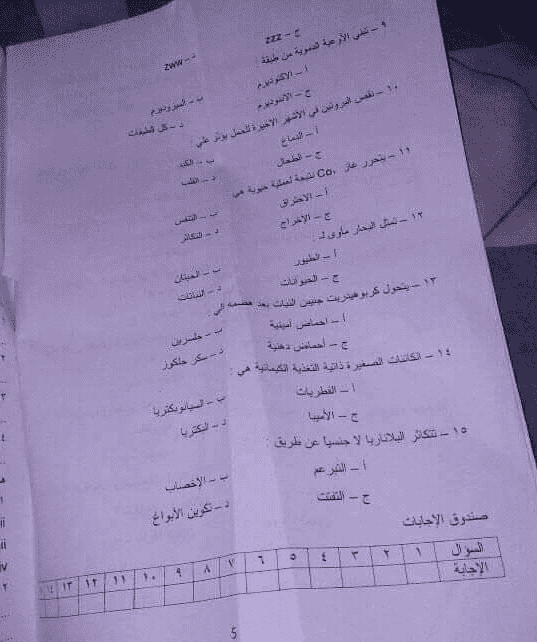 ج – zzz
د – zww
٩ – تبنى الأوعية الدموية من طبقة :
أ – الاكتوديرم
ب – الميزوديرم
ج – الاندوديرم
د – كل الطبقات
١٠ – نقص البروتين في الأشهر الاخيرة للحمل يؤثر علي :
أ – الدماغ
ب – الكبد
ج – الطحال
د – القلب
١١ – يتحرر غاز Co₂ نتيجة لعملية حيوية هي
أ – الاحتراق
ب – التنفس
ج – الإخراج
د – التكاثر
١٢ – تمثل البحار مأوى لـ :
أ – الطيور
ب – الحيتان
ج – الحيوانات
د – النباتات
١٣ – يتحول كربوهيدريت جنيس النبات بعد هضمه الي :
أ – احماض امينية
ب – جلسرين
ج – أحماض دهنية
د – سكر جلكوز
١٤ – الكائنات الصغيرة ذاتية التغذية الكيمائية هي :
أ – الفطريات
ب – السيانوبكتريا
ج – الأميبا
د – البكتريا
١٥ – تتكاثر البلاناريا لا جنسياً عن طريق :
أ – التبرعم
ب – الإخصاب
ج – التفتت
د – تكوين الأبواغ
صندوق الإجابات
السؤال ١ ٢ ٣ ٤ ٥ ٦ ٧ ٨ ٩ ١٠ ١١ ١٢ ١٣ ١٤
الإجابة
5